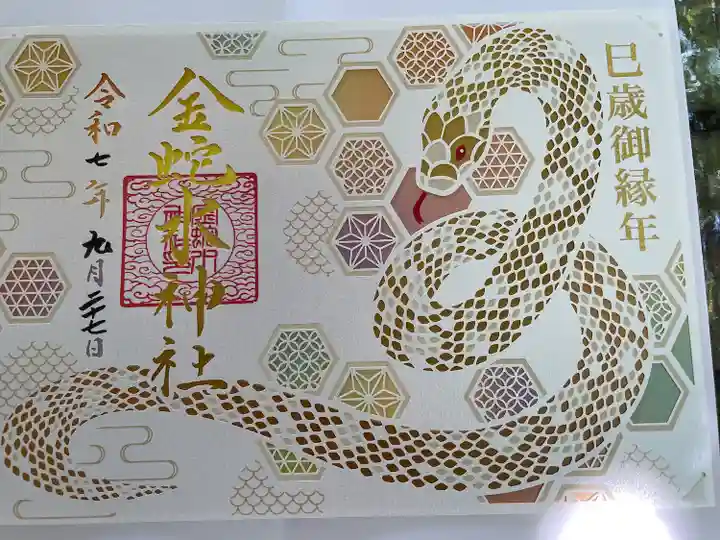 巳歳御縁年
金蛇水神社
令和七年九月二十七日